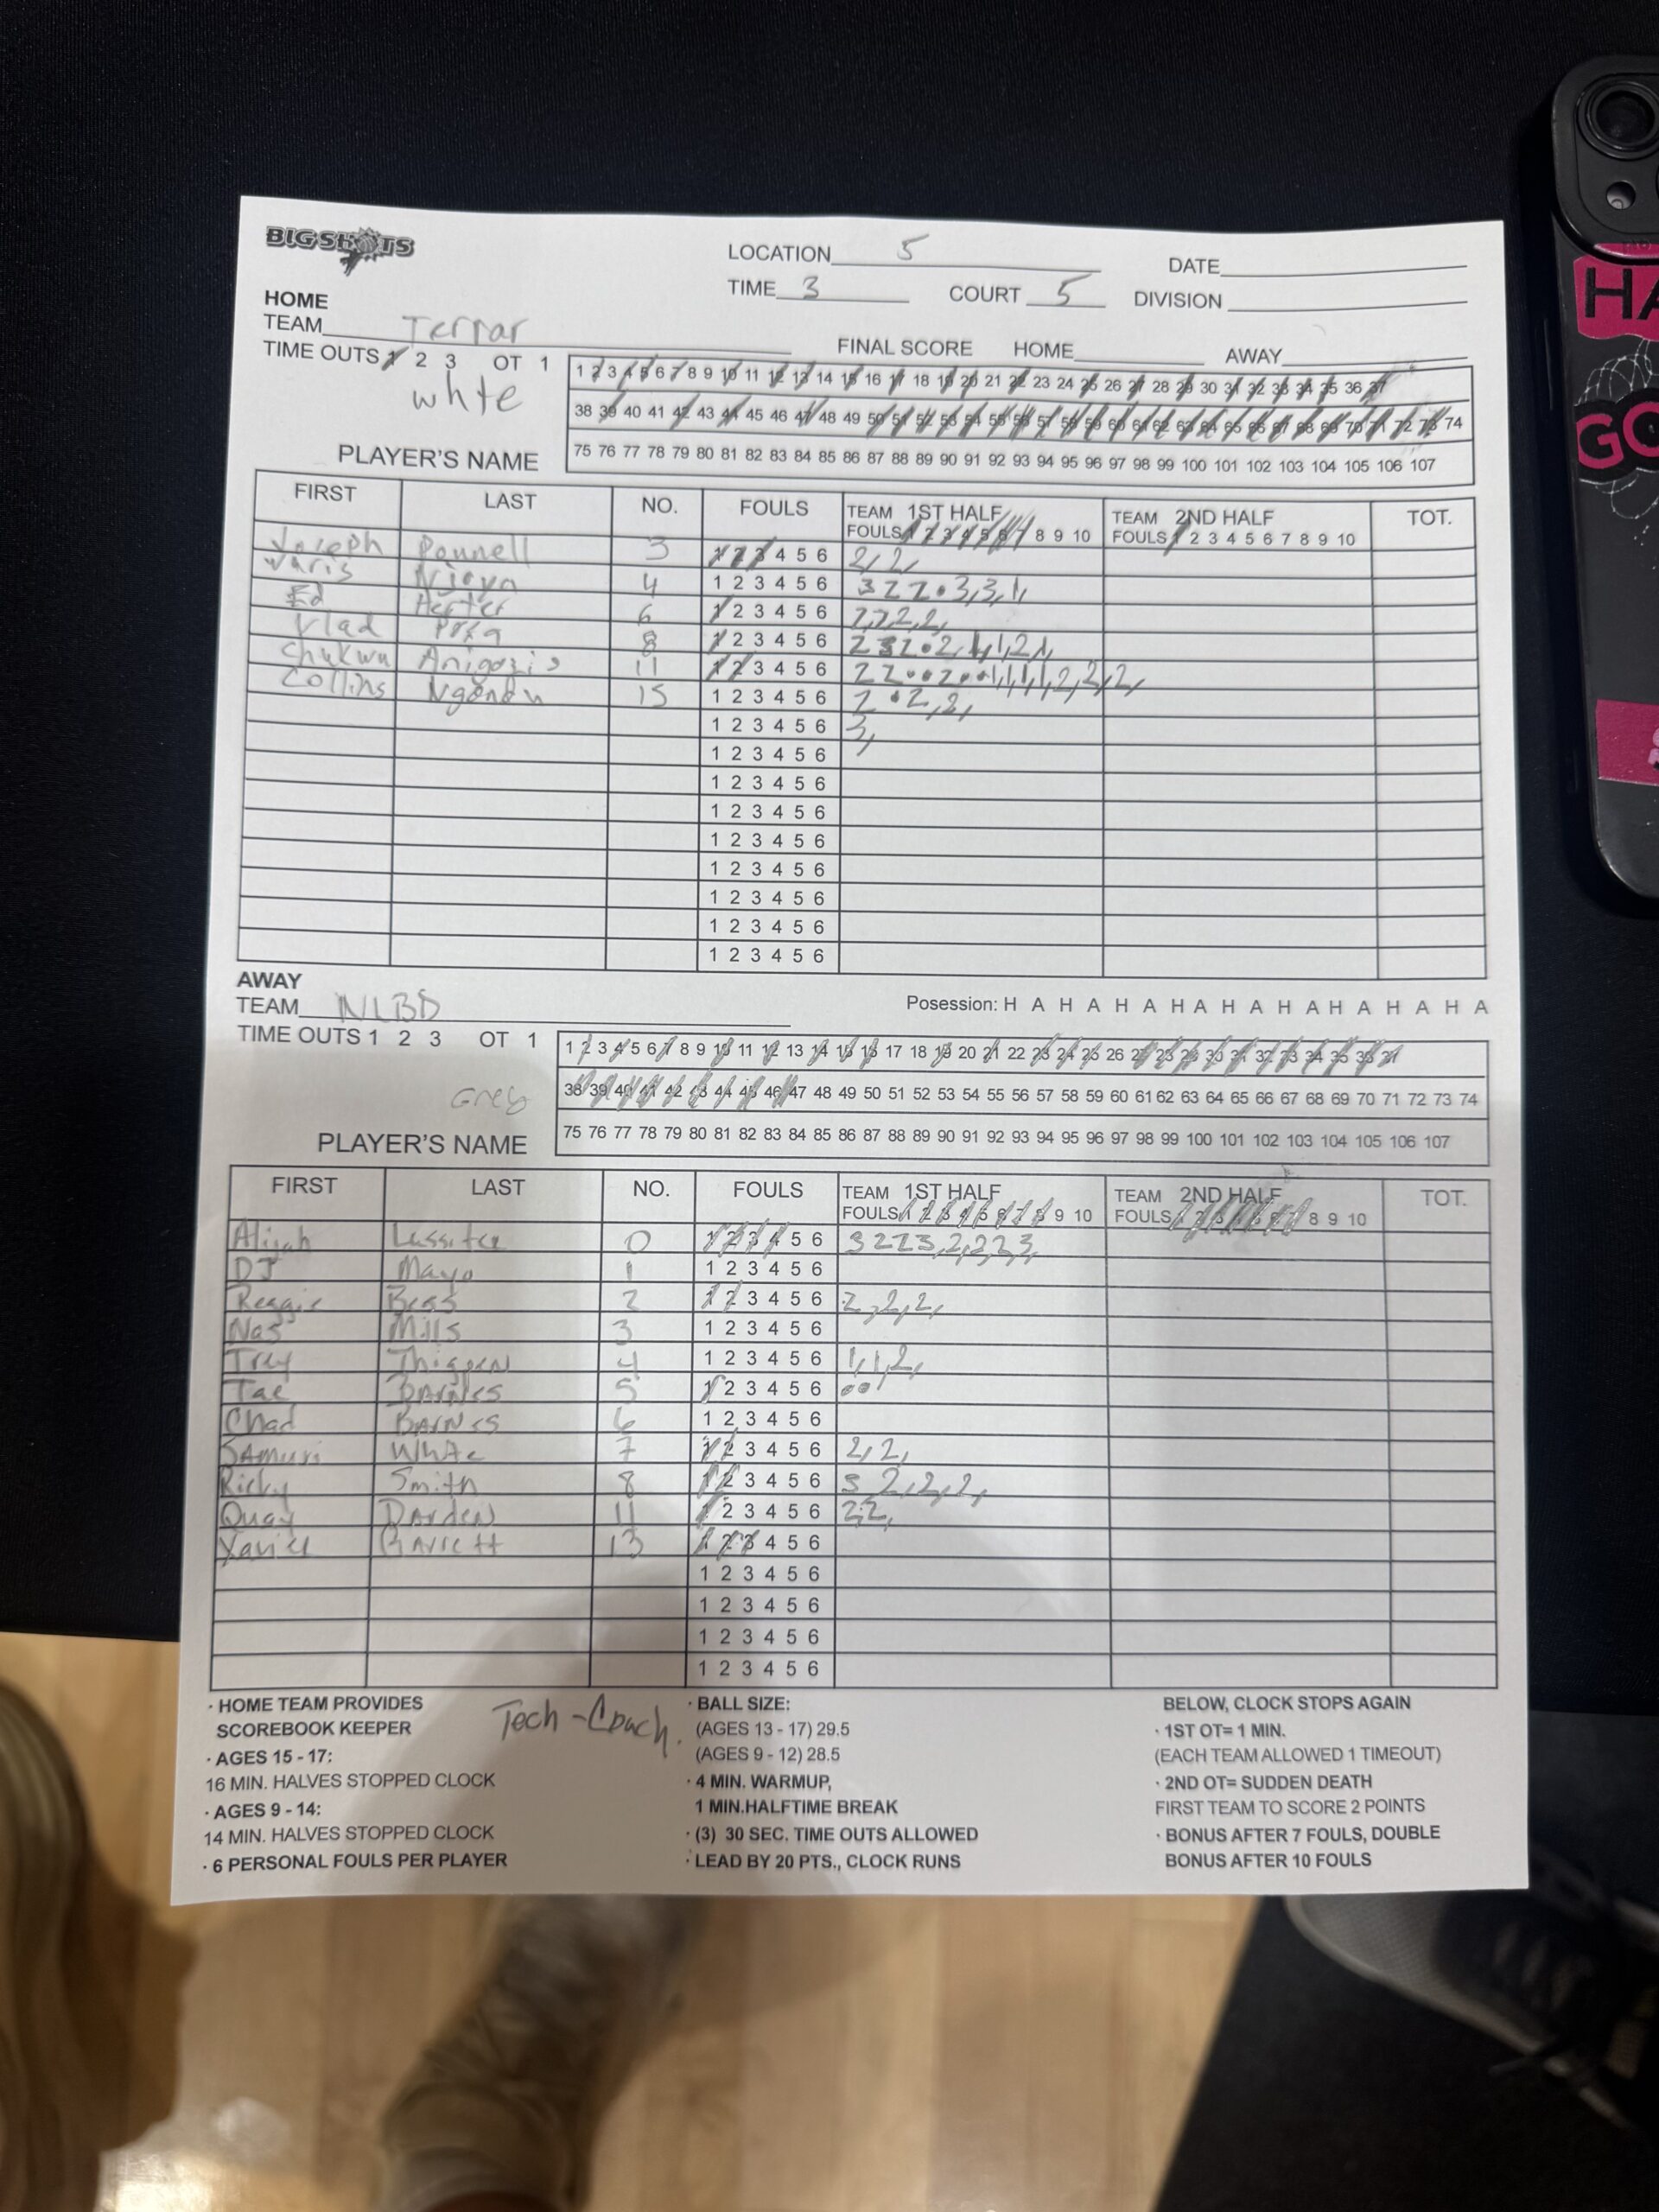 BIG SHOTS
LOCATION 5 DATE
TIME 3 COURT 5 DIVISION
HOME
TEAM Terrar
FINAL SCORE HOME AWAY
TIME OUTS 1 2 3 OT 1
white
1 2 3 4 5 6 7 8 9 10 11 12 13 14 15 16 17 18 19 20 21 22 23 24 25 26 27 28 29 30 31 32 33 34 35 36 37
38 39 40 41 42 43 44 45 46 47 48 49 50 51 52 53 54 55 56 57 58 59 60 61 62 63 64 65 66 67 68 69 70 71 72 73 74
75 76 77 78 79 80 81 82 83 84 85 86 87 88 89 90 91 92 93 94 95 96 97 98 99 100 101 102 103 104 105 106 107
PLAYER'S NAME
FIRST LAST NO. FOULS TEAM 1ST HALF TEAM 2ND HALF TOT.
FOULS 1 2 3 4 5 6 7 8 9 10 FOULS 1 2 3 4 5 6 7 8 9 10
Joseph Pannell 3 1 2 3 4 5 6 2, 2,
Njoya 4 1 2 3 4 5 6 3 2 2 • 3, 3, 1,
Ed Herter 6 1 2 3 4 5 6 2, 2, 2, 2,
Vlad 8 1 2 3 4 5 6
Chukwu 11 1 2 3 4 5 6
Collins Ngandu 15 1 2 3 4 5 6 2 • 2, 2,
1 2 3 4 5 6 3,
1 2 3 4 5 6
1 2 3 4 5 6
1 2 3 4 5 6
1 2 3 4 5 6
1 2 3 4 5 6
1 2 3 4 5 6
1 2 3 4 5 6
1 2 3 4 5 6
AWAY
TEAM NLBD
Posession: H A H A H A H A H A H A H A H A H A
TIME OUTS 1 2 3 OT 1
Grey
1 2 3 4 5 6 7 8 9 10 11 12 13 14 15 16 17 18 19 20 21 22 23 24 25 26 27 28 29 30 31 32 33 34 35 36 37
38 39 40 41 42 43 44 45 46 47 48 49 50 51 52 53 54 55 56 57 58 59 60 61 62 63 64 65 66 67 68 69 70 71 72 73 74
75 76 77 78 79 80 81 82 83 84 85 86 87 88 89 90 91 92 93 94 95 96 97 98 99 100 101 102 103 104 105 106 107
PLAYER'S NAME
FIRST LAST NO. FOULS TEAM 1ST HALF TEAM 2ND HALF TOT.
FOULS 1 2 3 4 5 6 7 8 9 10 FOULS 1 2 3 4 5 6 7 8 9 10
Alijah Lassiter 0 1 2 3 4 5 6
DJ Mayo 1 1 2 3 4 5 6
Reggie Bess 2 1 2 3 4 5 6 2, 2, 2,
Nas Mills 3 1 2 3 4 5 6
Trey Thigpen 4 1 2 3 4 5 6 1, 1, 2,
Tae BARNES 5 1 2 3 4 5 6
Chad BARNES 6 1 2 3 4 5 6
SAMURI White 7 1 2 3 4 5 6 2, 2,
Ricky Smith 8 1 2 3 4 5 6 3 2, 2, 2,
Quay DARDEN 11 1 2 3 4 5 6 2 2,
Xavier Barrett 13 1 2 3 4 5 6
1 2 3 4 5 6
1 2 3 4 5 6
1 2 3 4 5 6
1 2 3 4 5 6
Tech - Coach.
· HOME TEAM PROVIDES
SCOREBOOK KEEPER
· AGES 15 - 17:
16 MIN. HALVES STOPPED CLOCK
· AGES 9 - 14:
14 MIN. HALVES STOPPED CLOCK
· 6 PERSONAL FOULS PER PLAYER
· BALL SIZE:
(AGES 13 - 17) 29.5
(AGES 9 - 12) 28.5
· 4 MIN. WARMUP,
1 MIN.HALFTIME BREAK
· (3) 30 SEC. TIME OUTS ALLOWED
· LEAD BY 20 PTS., CLOCK RUNS
BELOW, CLOCK STOPS AGAIN
· 1ST OT= 1 MIN.
(EACH TEAM ALLOWED 1 TIMEOUT)
· 2ND OT= SUDDEN DEATH
FIRST TEAM TO SCORE 2 POINTS
· BONUS AFTER 7 FOULS, DOUBLE
BONUS AFTER 10 FOULS
HA
GO